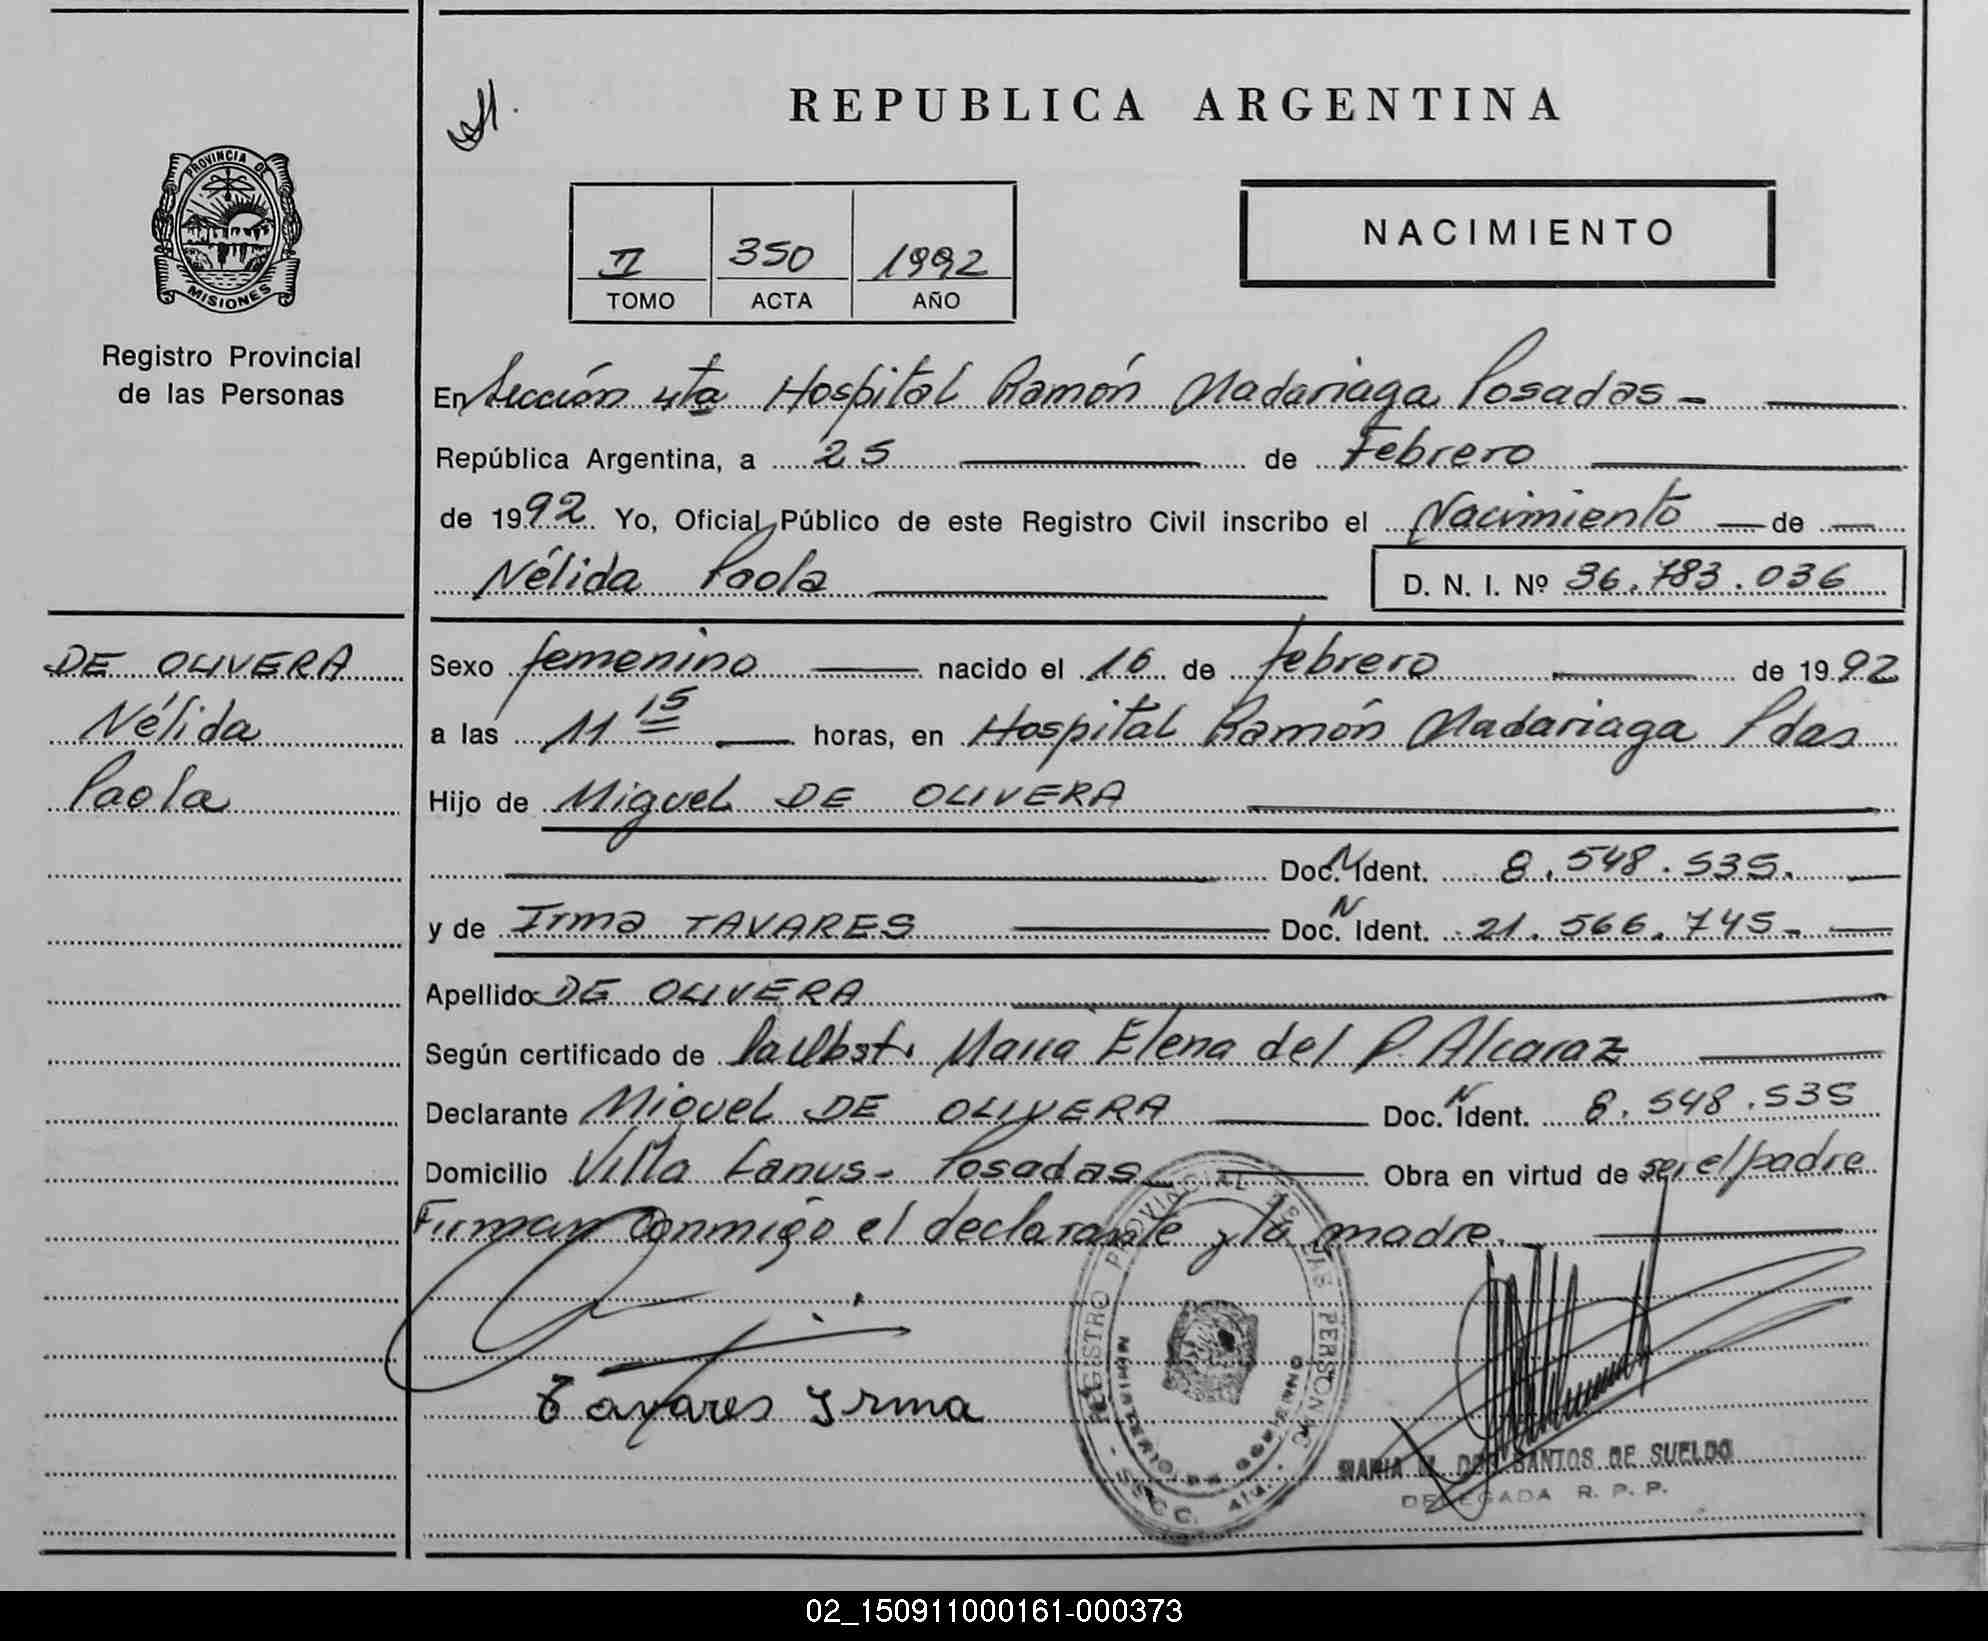 REPUBLICA ARGENTINA
PROVINCIA DE
MISIONES
Registro Provincial
de las Personas
II 350 1992
TOMO ACTA AÑO
NACIMIENTO
En Sección 4ta Hospital Ramón Madariaga Posadas -
República Argentina, a 25 de Febrero
de 1992 Yo, Oficial Público de este Registro Civil inscribo el Nacimiento de
Nélida Paola D. N. I. Nº 36.783.036
DE OLIVERA
Nélida
Paola
Sexo femenino nacido el 16 de febrero de 1992
a las 11 15 horas, en Hospital Ramón Madariaga Pdas
Hijo de Miguel DE OLIVERA
Doc. N Ident. 8.548.535.
y de Irma TAVARES Doc. N Ident. 21.566.745-
Apellido DE OLIVERA
Según certificado de la Obst. María Elena del P. Alcaraz
Declarante Miguel DE OLIVERA Doc. N Ident. 8.548.535
Domicilio Villa Lanus- Posadas- Obra en virtud de ser el padre
Firman conmigo el declarante y la madre.
Tavares Irma
REGISTRO PROVINCIAL DE LAS PERSONAS
MARIA M. DOS SANTOS DE SUELDO
DELEGADA R. P. P.
02_150911000161-000373